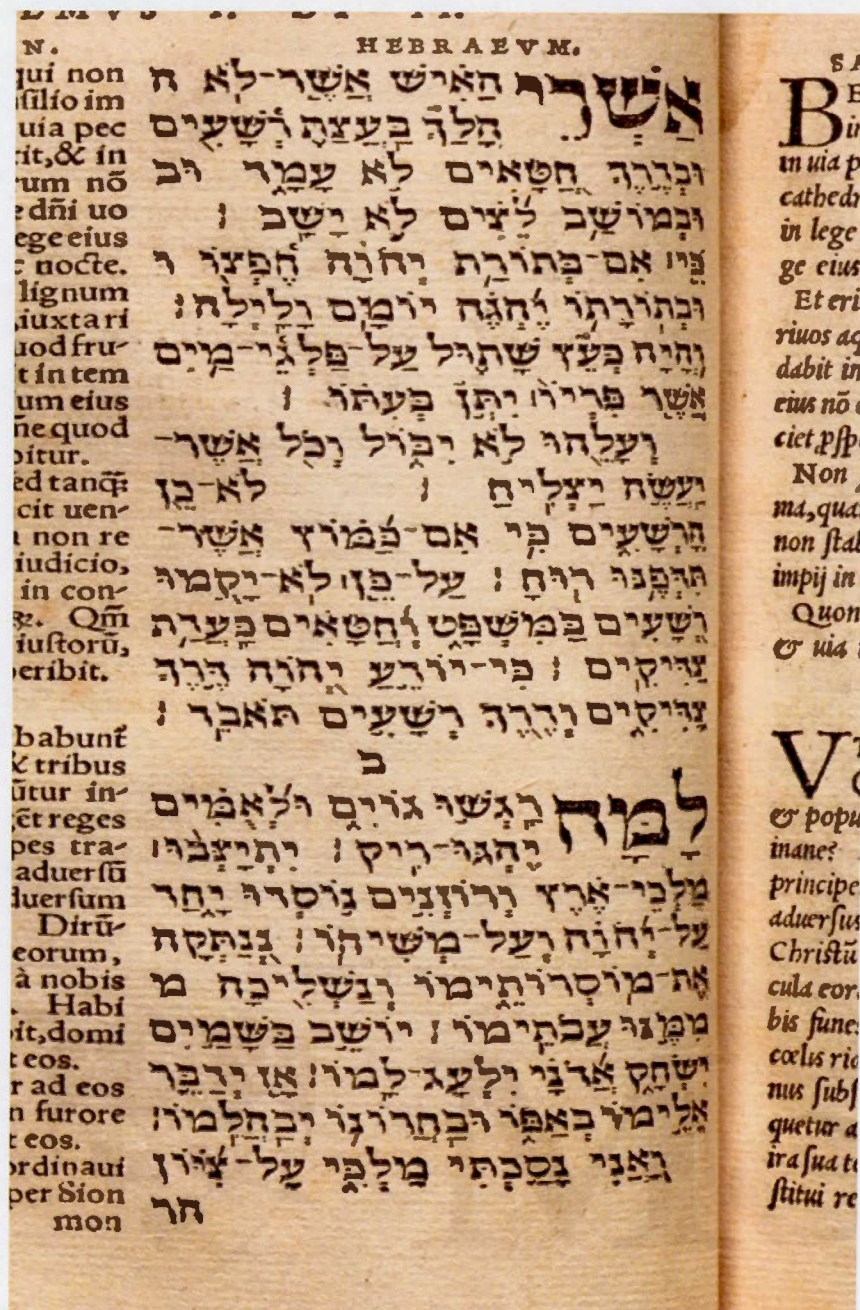 N.
qui non
silio im
uia pec
rit,& in
rum nō
e dñi uo
ege eius
c nocte.
lignum
iuxta ri
uod fru-
t in tem
um eius
ñe quod
bitur.
ed tanq̃;
cit uen-
non re
iudicio,
in con-
Qm̃
iustorũ,
peribit.
babunt̃
& tribus
ũtur in-
gēt reges
pes tra-
aduersũ
duersum
Dirũ-
eorum,
à nobis
Habi
bit,domi
t eos.
r ad eos
n furore
t eos.
ordinaui
per Sion
mon
HEBRAEVM.
אַשְׁרֵי הָאִישׁ אֲשֶׁר־לֹא ה
הָלַךְ בַּעֲצַת רְשָׁעִים
וּבְדֶרֶךְ חַטָּאִים לֹא עָמָד וּב
וּבְמוֹשַׁב לֵצִים לֹא יָשָׁב׃
כִּי אִם־בְּתוֹרַת יְהוָֹה חֶפְצוֹ ו
וּבְתוֹרָתוֹ יֶהְגֶּה יוֹמָם וָלָיְלָה׃
וְהָיָה כְּעֵץ שָׁתוּל עַל־פַּלְגֵי־מָיִם
אֲשֶׁר פִּרְיוֹ יִתֵּן בְּעִתּוֹ׃
וְעָלֵהוּ לֹא יִבּוֹל וְכֹל אֲשֶׁר־
יַעֲשֶׂה יַצְלִיחַ׃ לֹא־כֵן
הָרְשָׁעִים כִּי אִם־כַּמּוֹץ אֲשֶׁר־
תִּדְּפֶנּוּ רוּחַ׃ עַל־כֵּן לֹא־יָקֻמוּ
רְשָׁעִים בַּמִּשְׁפָּט וְחַטָּאִים בַּעֲדַת
צַדִּיקִים׃ כִּי־יוֹדֵעַ יְהוָֹה דֶּרֶךְ
צַדִּיקִים וְדֶרֶךְ רְשָׁעִים תֹּאבֵד׃
ב
לָמָּה רָגְשׁוּ גוֹיִם וּלְאֻמִּים
יֶהְגּוּ־רִיק׃ יִתְיַצְּבוּ
מַלְכֵי־אֶרֶץ וְרוֹזְנִים נוֹסְדוּ יָחַד
עַל־יְהוָֹה וְעַל־מְשִׁיחוֹ׃ נְנַתְּקָה
אֶת־מוֹסְרוֹתֵימוֹ וְנַשְׁלִיכָה מ
מִמֶּנּוּ עֲבֹתֵימוֹ׃ יוֹשֵׁב בַּשָּׁמַיִם
יִשְׂחָק אֲדֹנָי יִלְעַג־לָמוֹ׃ אָז יְדַבֵּר
אֵלֵימוֹ בְאַפּוֹ וּבַחֲרוֹנוֹ יְבַהֲלֵמוֹ׃
וַאֲנִי נָסַכְתִּי מַלְכִּי עַל־צִיּוֹן
הר
in uia p
cathedr
in lege
ge eius
Et eri
riuos aq
dabit in
eius nō
Non
ma,qua
non stab
impij in
Quon
& uia
& popu
inane?
principe
aduersus
Christũ
cula eor
bis fune
cœlis rid
nus subs
quetur a
ira sua to
stitui re